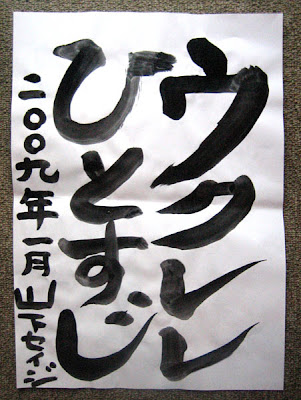 ウクレレ
ひとすじ
二〇〇九年一月山下セイジ